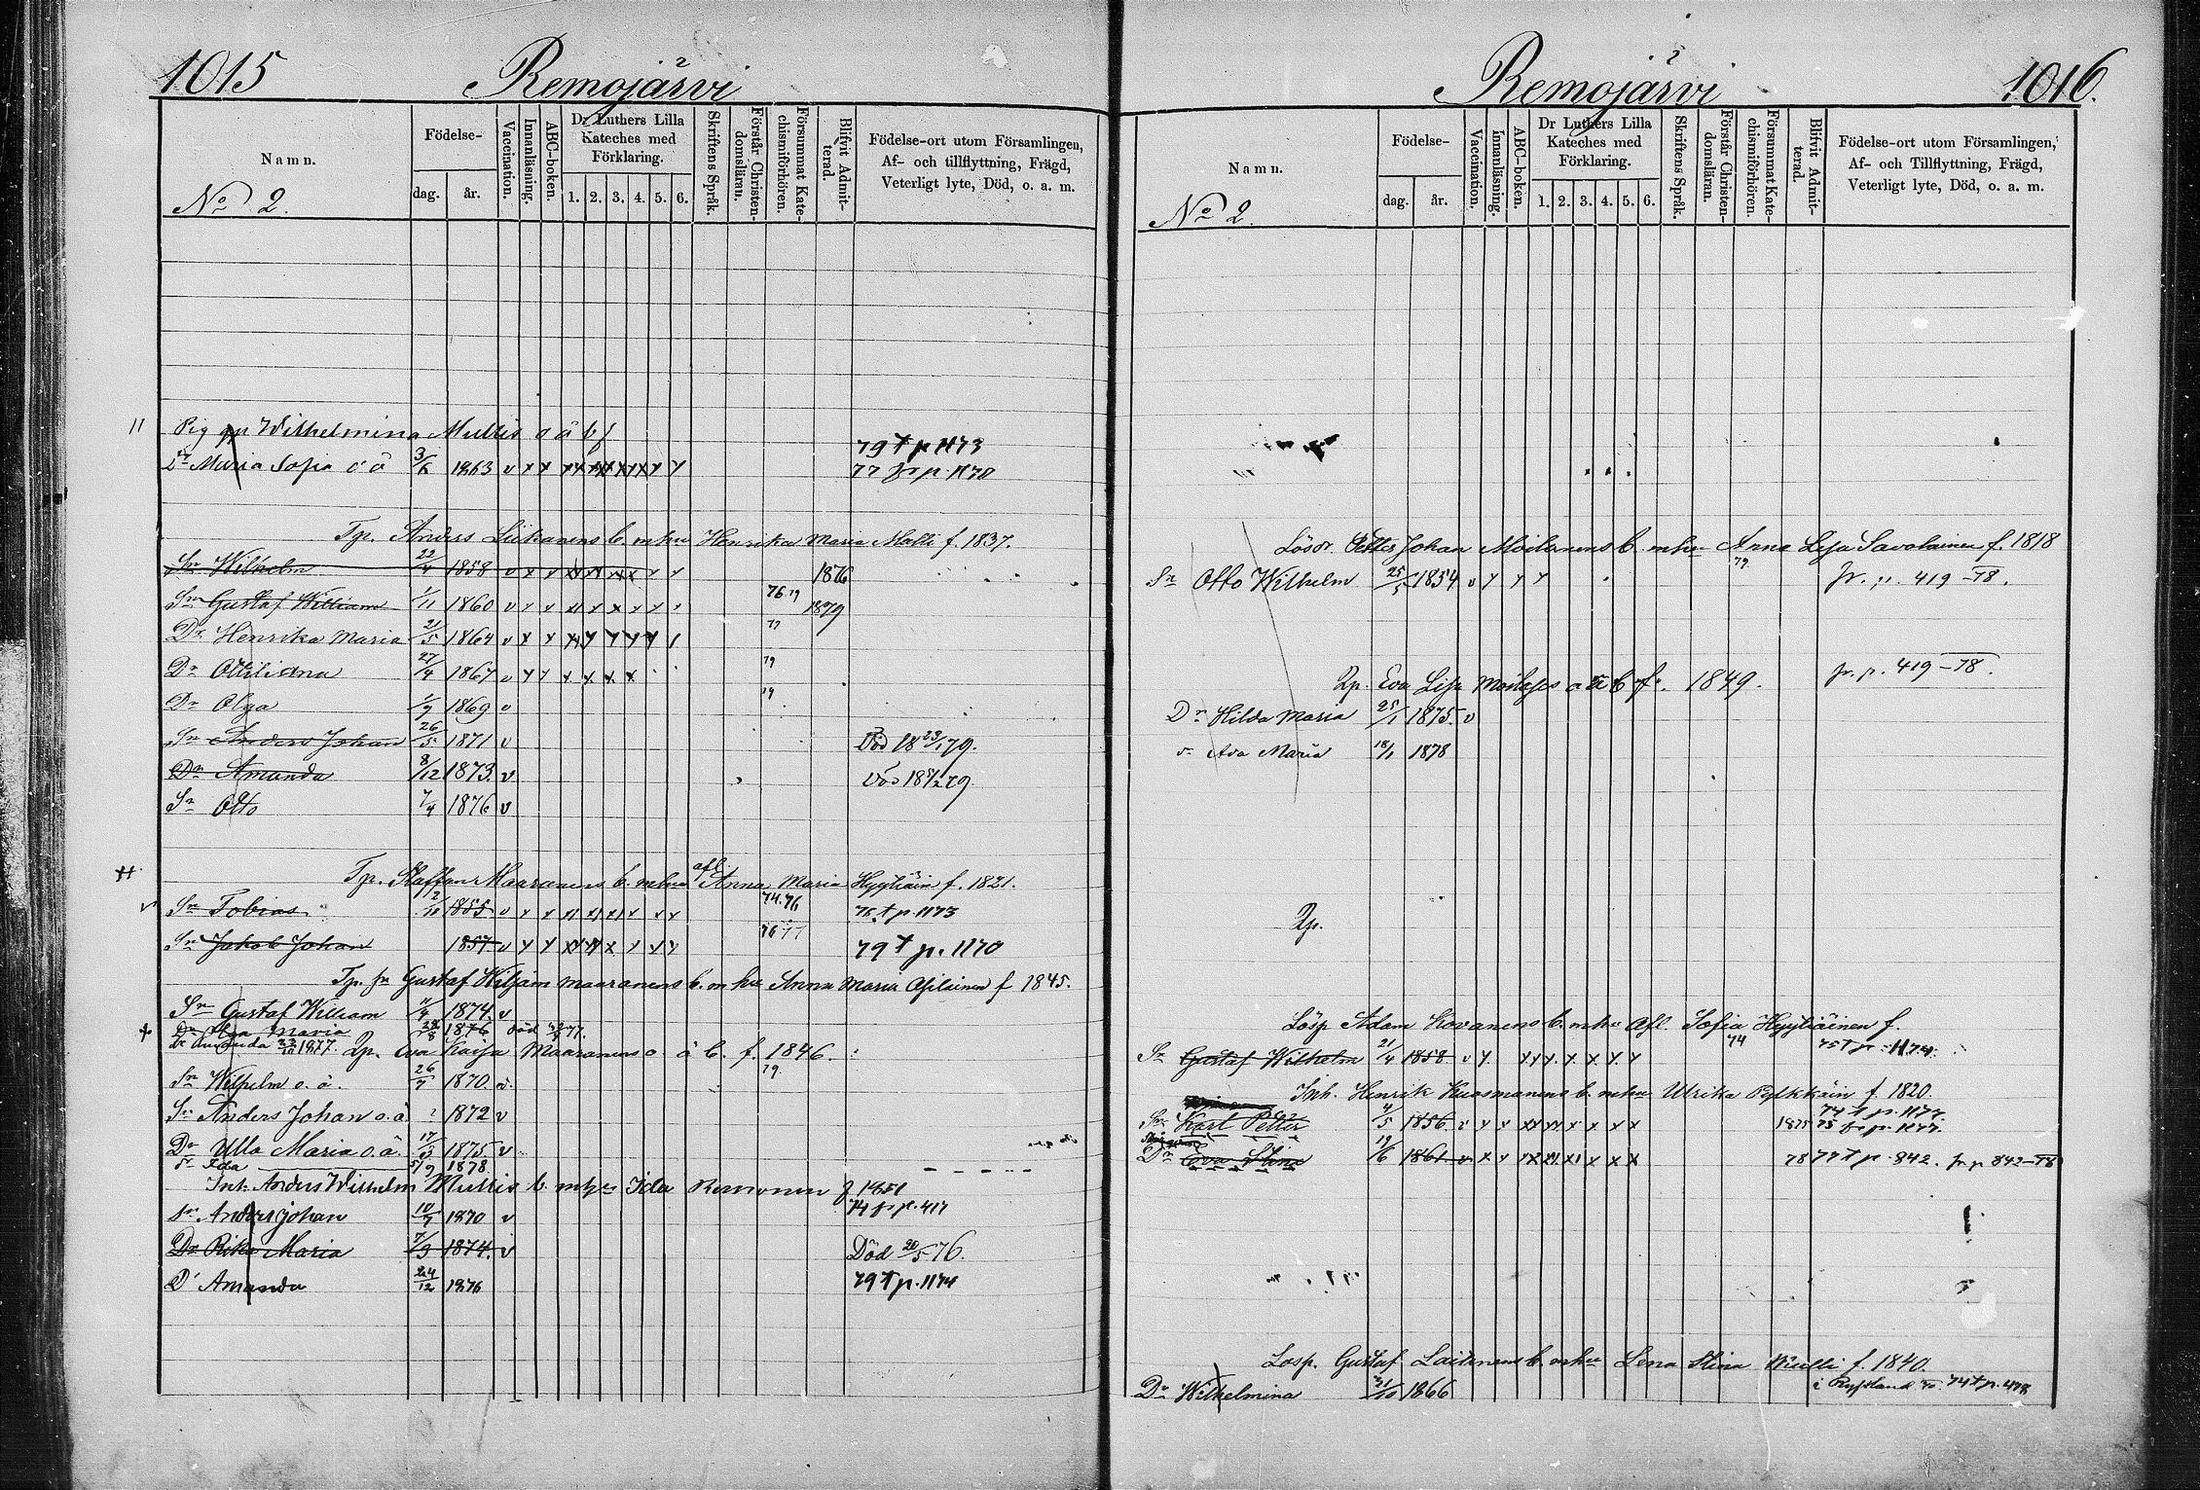 1015
Remojärvi
Namn.
Födelse-
dag.
år.
Vaccination.
Innanläsning.
ABC-boken.
Dr Luthers Lilla
Kateches med
Förklaring.
1. 2. 3. 4. 5. 6.
Skriftens Språk.
Förstår Christen-
domsläran.
Försummat Kate-
chismiförhören.
Blifvit Admit-
terad.
Födelse-ort utom Församlingen,
Af- och tillflyttning, Frägd,
Veterligt lyte, Död, o. a. m.
No 2.
Pig Wilhelmina o ä b f 79 † p. 1173
Dr Maria Sofia o ä 3/6 1863 v 77 fr p. 1170
Tp. Anders b. m hu Henrika Maria Malli f. 1837.
Sn Wilhelm 22/4 1858 v 1876
Sn Gustaf William 1/11 1860 v 76 79 1879
Dr Henrika Maria 21/5 1864 v 77
Dr Ottiliana 27/4 1867 v 79
Dr Olga 1/9 1869 v 79
Sn Anders Johan 26/5 1871 v Död 18 23/1 79.
Dr Amanda 8/12 1873 v Död 79.
Sn Otto 7/4 1876 v
Tp. Staffan Maaranens b. m hu afl. Anna Maria f. 1821.
Sn Tobias 1855 v 74. 76 76 † p. 1173
Sn Jakob Johan 1857 v 76 77 79 † p. 1170
Tp. fr Gustaf Wiljam Maaranens b. m hu Anna Maria f 1845.
Sn Gustaf William 11/4 1874. v
Dr Maria 1876 död 77.
Dr Amanda 1877. Qp. Eva Kaisa Maaranens o ä b. f. 1846.
Sn Wilhelm o. ä. 26/7 1870. v 79.
Sn Anders Johan o. ä 1872 v
Dr Ulla Maria o. ä. 1875 v
Dr Ida 5/9 1878
Inh. Anders Wilhelm b. m hu Ida f 1851
Sn Anders Johan 10/7 1870 v 74 fr p. 417
Dr Maria 7/3 1874. v Död 20/5 76.
D Amanda 24/12 1876 79 † p. 1174
Remojärvi
1016.
Namn.
Födelse-
dag.
år.
Vaccination.
Innanläsning.
ABC-boken.
Dr Luthers Lilla
Kateches med
Förklaring.
1. 2. 3. 4. 5. 6.
Skriftens Språk.
Förstår Christen-
domsläran.
Försummat Kate-
chismiförhören.
Blifvit Admit-
terad.
Födelse-ort utom Församlingen,
Af- och Tillflyttning, Frägd,
Veterligt lyte, Död, o. a. m.
No 2.
Petter Johan Moilanens b. m hu Anna Lisa Savolainen f. 1818
Sn Otto Wilhelm 25/5 1854 v 79 fr. p. 419-78.
Qp. Eva Lisa o ä b f. 1849. fr. p. 419-78.
Dr Hilda Maria 25/1 1875. v
Maria 18/1 1878
Qp.
Lösp Adam Kovanens b. m hu Afl. Sofia Hyytiäinen f.
Sn Gustaf Wilhelm 21/4 1858 v 74 75 † p. 1174.
Inh. Henrik Kuosmanens b. m hu Ulrika f. 1820.
Sn Karl Petter 4/5 1856. v 1875 74 † p. 1177. 75 fr p. 1177.
Dr Eva Stina 19/6 1861. v 78 77 † p. 842. fr p 842-78
Lösp. Gustaf Laitinens b. m hu Lena Stina f. 1840.
Dr Wilhelmina 31/10 1866 i Ryssland 74 † p. 478